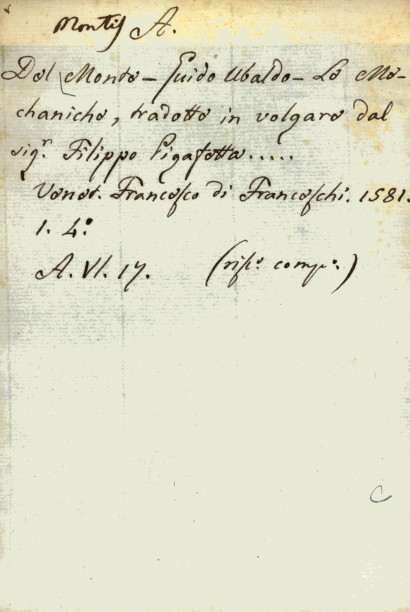 Montis A.
Del Monte – Guido Ubaldo – Le Me-
chaniche, tradotte in volgare dal
sigr. Filippo Pigafetta.....
Venet. Francesco di Franceschi. 1581.
1. 4°.
A. VI. 17. (risto. compo.)
C